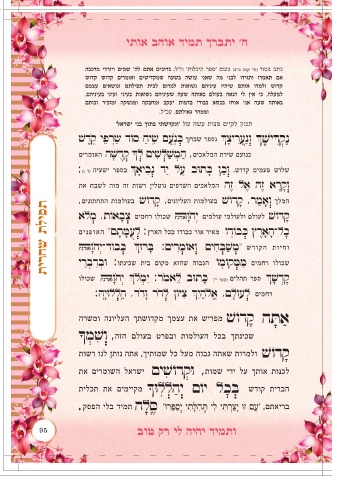 ה' יתברך תמיד אוהב אותי
כתב בטור בשם 'ספר היכלות' וז"ל: ברוכים אתם לה' שמים ויורדי מרכבה
אם תאמרו ותגידו לבני מה שאני עושה בשעה שמקדישים ואומרים קדוש קדוש
קדוש ולמדו אותם שיהיו עיניהם נשואות למרום לבית תפילתם ונושאים עצמם
למעלה, כי אין לי הנאה בעולם כאותה שעה שעיניהם נשואות בעיני ועיני בעיניהם,
באותה שעה אני אוחז בכסא כבודי בדמות יעקב ומחבקה ומנשקה ומזכיר זכותם
וממהר גאולתם. עכ"ל.
תכוון לקיים מצות עשה של 'ונקדשתי בתוך בני ישראל'
נַקְדִּישָׁךְ וְנַעֲרִיצָךְ כְּנֹעַם שִׂיחַ סוֹד שַׂרְפֵי קֹדֶשׁ
כנועם שירת המלאכים, הַמְשַׁלְּשִׁים לְךָ קְדֻשָּׁה האומרים
שלוש פעמים קדוש. וְכֵן כָּתוּב עַל יַד נְבִיאָךְ בספר ישעיה
וְקָרָא זֶה אֶל זֶה המלאכים השרפים נוטלין רשות זה מזה לשבח את
המלך וְאָמַר. קָדוֹשׁ בעולמות העליונים, קָדוֹשׁ בעולמות התחתונים,
קָדוֹשׁ לעולם ולעולמי עולמים יְהֹוָה שכולו רחמים צְבָאוֹת, מְלֹא
כָל־הָאָרֶץ כְּבוֹדוֹ מאיר אור כבודו בכל הארץ: לְעֻמָּתָם האופנים
וחיות הקודש מְשַׁבְּחִים וְאוֹמְרִים: בָּרוּךְ כְּבוֹד־יְהֹוָה
שכולו רחמים מִמְּקוֹמוֹ הגבוה שהוא מקום בית שכינתו: וּבְדִבְרֵי
קָדְשָׁךְ ספר תהלים כָּתוּב לֵאמֹר: יִמְלֹךְ יְהֹוָה שכולו
רחמים לְעוֹלָם. אֱלֹהַיִךְ צִיּוֹן לְדֹר וָדֹר. הַלְלוּיָהּ:
אַתָּה קָדוֹשׁ מפריש את עצמך מקדושתך העליונה ומשרה
שכינתך בכל העולמות ובפרט בעולם הזה, וְשִׁמְךָ
קָדוֹשׁ ולמרות שאתה גבוה מעל כל שמותיך, אתה נותן לנו רשות
לכנות אותך על ידי שמות, וּקְדוֹשִׁים ישראל השומרים את
הברית קודש בְּכָל יוֹם יְהַלְלוּךָ מקיימים את תכלית
בריאתם, 'עַם זוּ יָצַרְתִּי לִי תְּהִלָּתִי יְסַפֵּרוּ' סֶּלָה תמיד בלי הפסק.
ותמיד יהיה לי רק טוב
תפילת שחרית
95